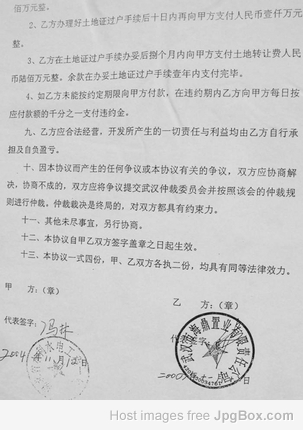 佰万元整。
2、乙方办理好土地证过户手续后十日内再向甲方支付人民币壹仟万元
整。
3、乙方在土地证过户手续办妥后捌个月内向甲方支付土地转让费人民
币陆佰万元整。余款在办妥土地证过户手续壹年内支付完毕。
4、如乙方未能按约定期限向甲方付款，在违约期内乙方向甲方每日按
应付款额的千分之一支付违约金。
九、乙方应合法经营，开发所产生的一切责任与利益均由乙方自行承
担及自负盈亏。
十、因本协议而产生的任何争议或本协议有关的争议，双方应协商解
决，协商不成的，双方应将争议提交武汉仲裁委员会并按照该会的仲裁规
则进行仲裁。仲裁裁决是终局的，对双方都具有约束力。
十一、其他未尽事宜，另行协商。
十二、本协议自甲乙双方签字盖章之日起生效。
十三、本协议一式四份，甲、乙双方各执二份，均具有同等法律效力。
甲 方：（章）
乙 方：（章）
代表签字：
代 签字：
2004 11月12日
武汉 海鼎置业有限责任公司
Host images free JpgBox.com